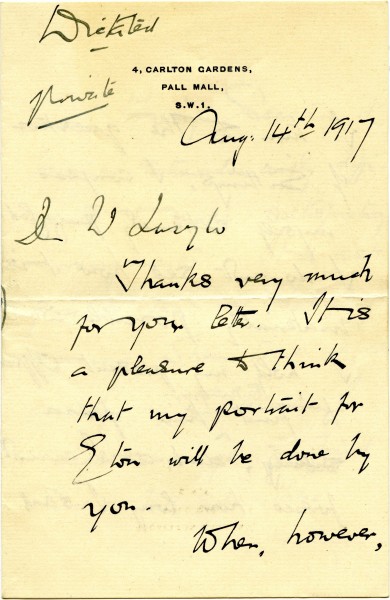 Dictated
Private
4, CARLTON GARDENS,
PALL MALL,
S.W.1.
Aug: 14th 1917
Laszlo
Thanks very much
for your letter. It is
a pleasure to think
that my portrait for
Eton will be done by
you.
When, however,